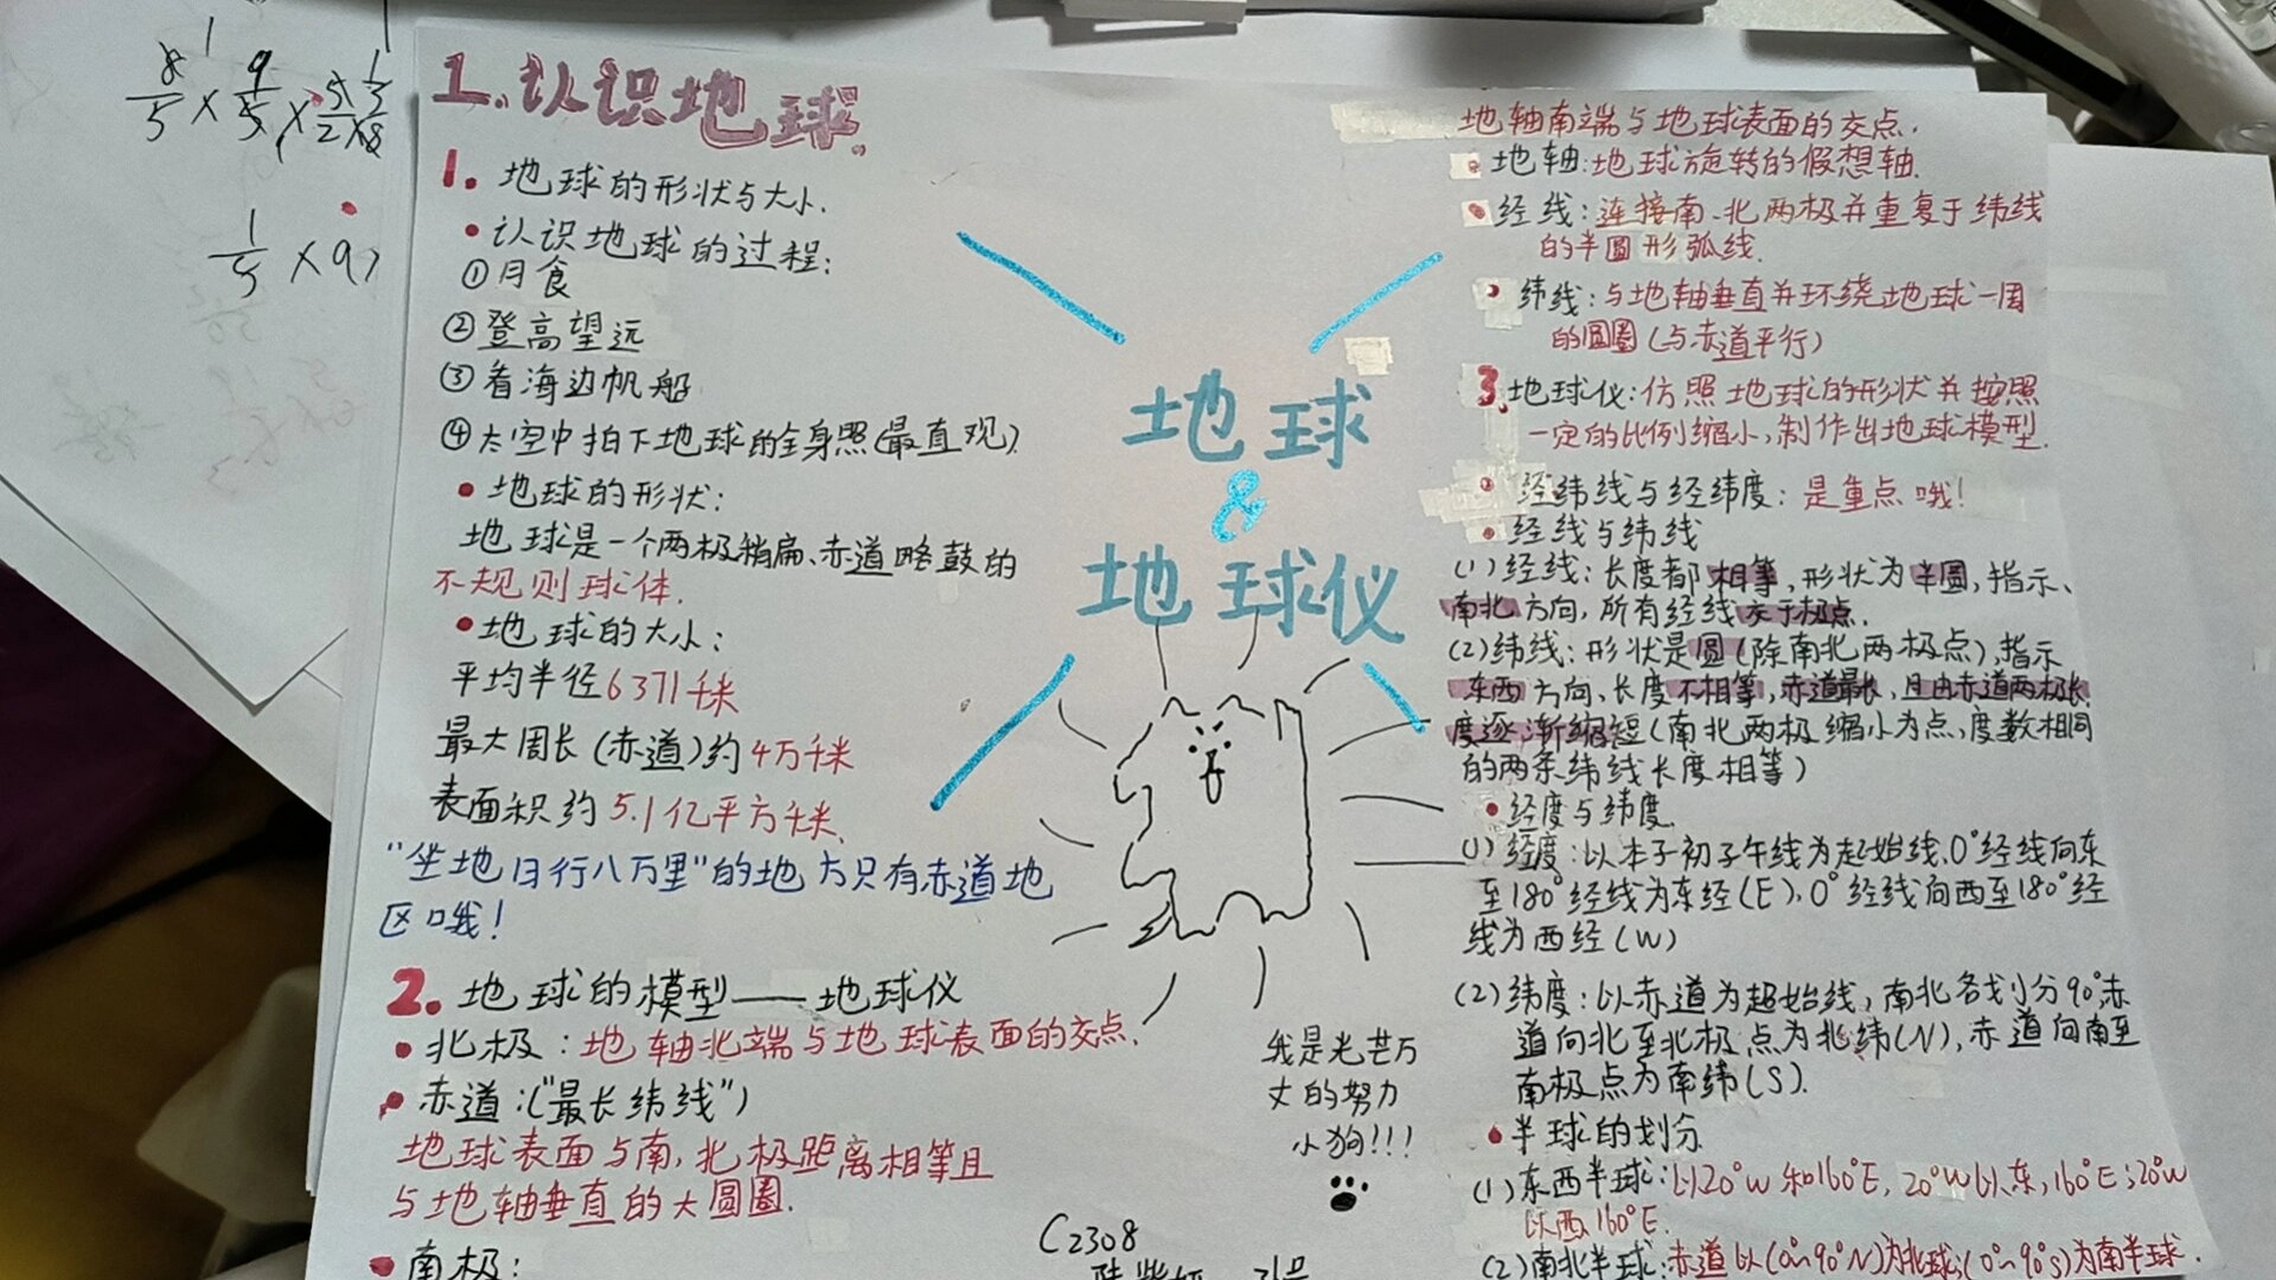 8/5 × 9/5 × 5/2 × 1/3
1/5 × 9
1.认识地球
1. 地球的形状与大小.
• 认识地球的过程:
①月食
②登高望远
③看海边帆船
④太空中拍下地球的全身照(最直观)
• 地球的形状:
地球是一个两极稍扁、赤道略鼓的
不规则球体.
• 地球的大小:
平均半径6371千米
最大周长(赤道)约4万千米
表面积约5.1亿平方千米.
"坐地日行八万里"的地方只有赤道地
区哦!
2. 地球的模型——地球仪
• 北极:地轴北端与地球表面的交点.
• 赤道:("最长纬线")
地球表面与南,北极距离相等且
与地轴垂直的大圆圈.
• 南极:
地球
&
地球仪
我是光芒万
丈的努力
小狗!!!
C2308
地轴南端与地球表面的交点.
• 地轴:地球旋转的假想轴.
• 经线:连接南、北两极并垂复于纬线
的半圆形弧线.
• 纬线:与地轴垂直并环绕地球一周
的圆圈(与赤道平行)
3 地球仪:仿照地球的形状并按照
一定的比例缩小,制作出地球模型.
• 经纬线与经纬度:是重点哦!
• 经线与纬线
(1)经线:长度都相等,形状为半圆,指示、
南北方向,所有经线交于极点.
(2)纬线:形状是圆(除南北两极点),指示
东西方向、长度不相等,赤道最长,且由赤道两极长
度逐渐缩短(南北两极缩小为点,度数相同
的两条纬线长度相等)
• 经度与纬度.
(1)经度:以本子初子午线为起始线、0°经线向东
至180°经线为东经(E)、0°经线向西至180°经
线为西经(W)
(2)纬度:以赤道为起始线,南北各划分90°,赤
道向北至北极点为北纬(N),赤道向南至
南极点为南纬(S).
• 半球的划分
(1)东西半球:以20°W和160°E,20°W以东,160°E;20°W
以西160°E.
(2)南北半球:赤道以(0°~90°N)为北球;(0°~90°S)为南半球.